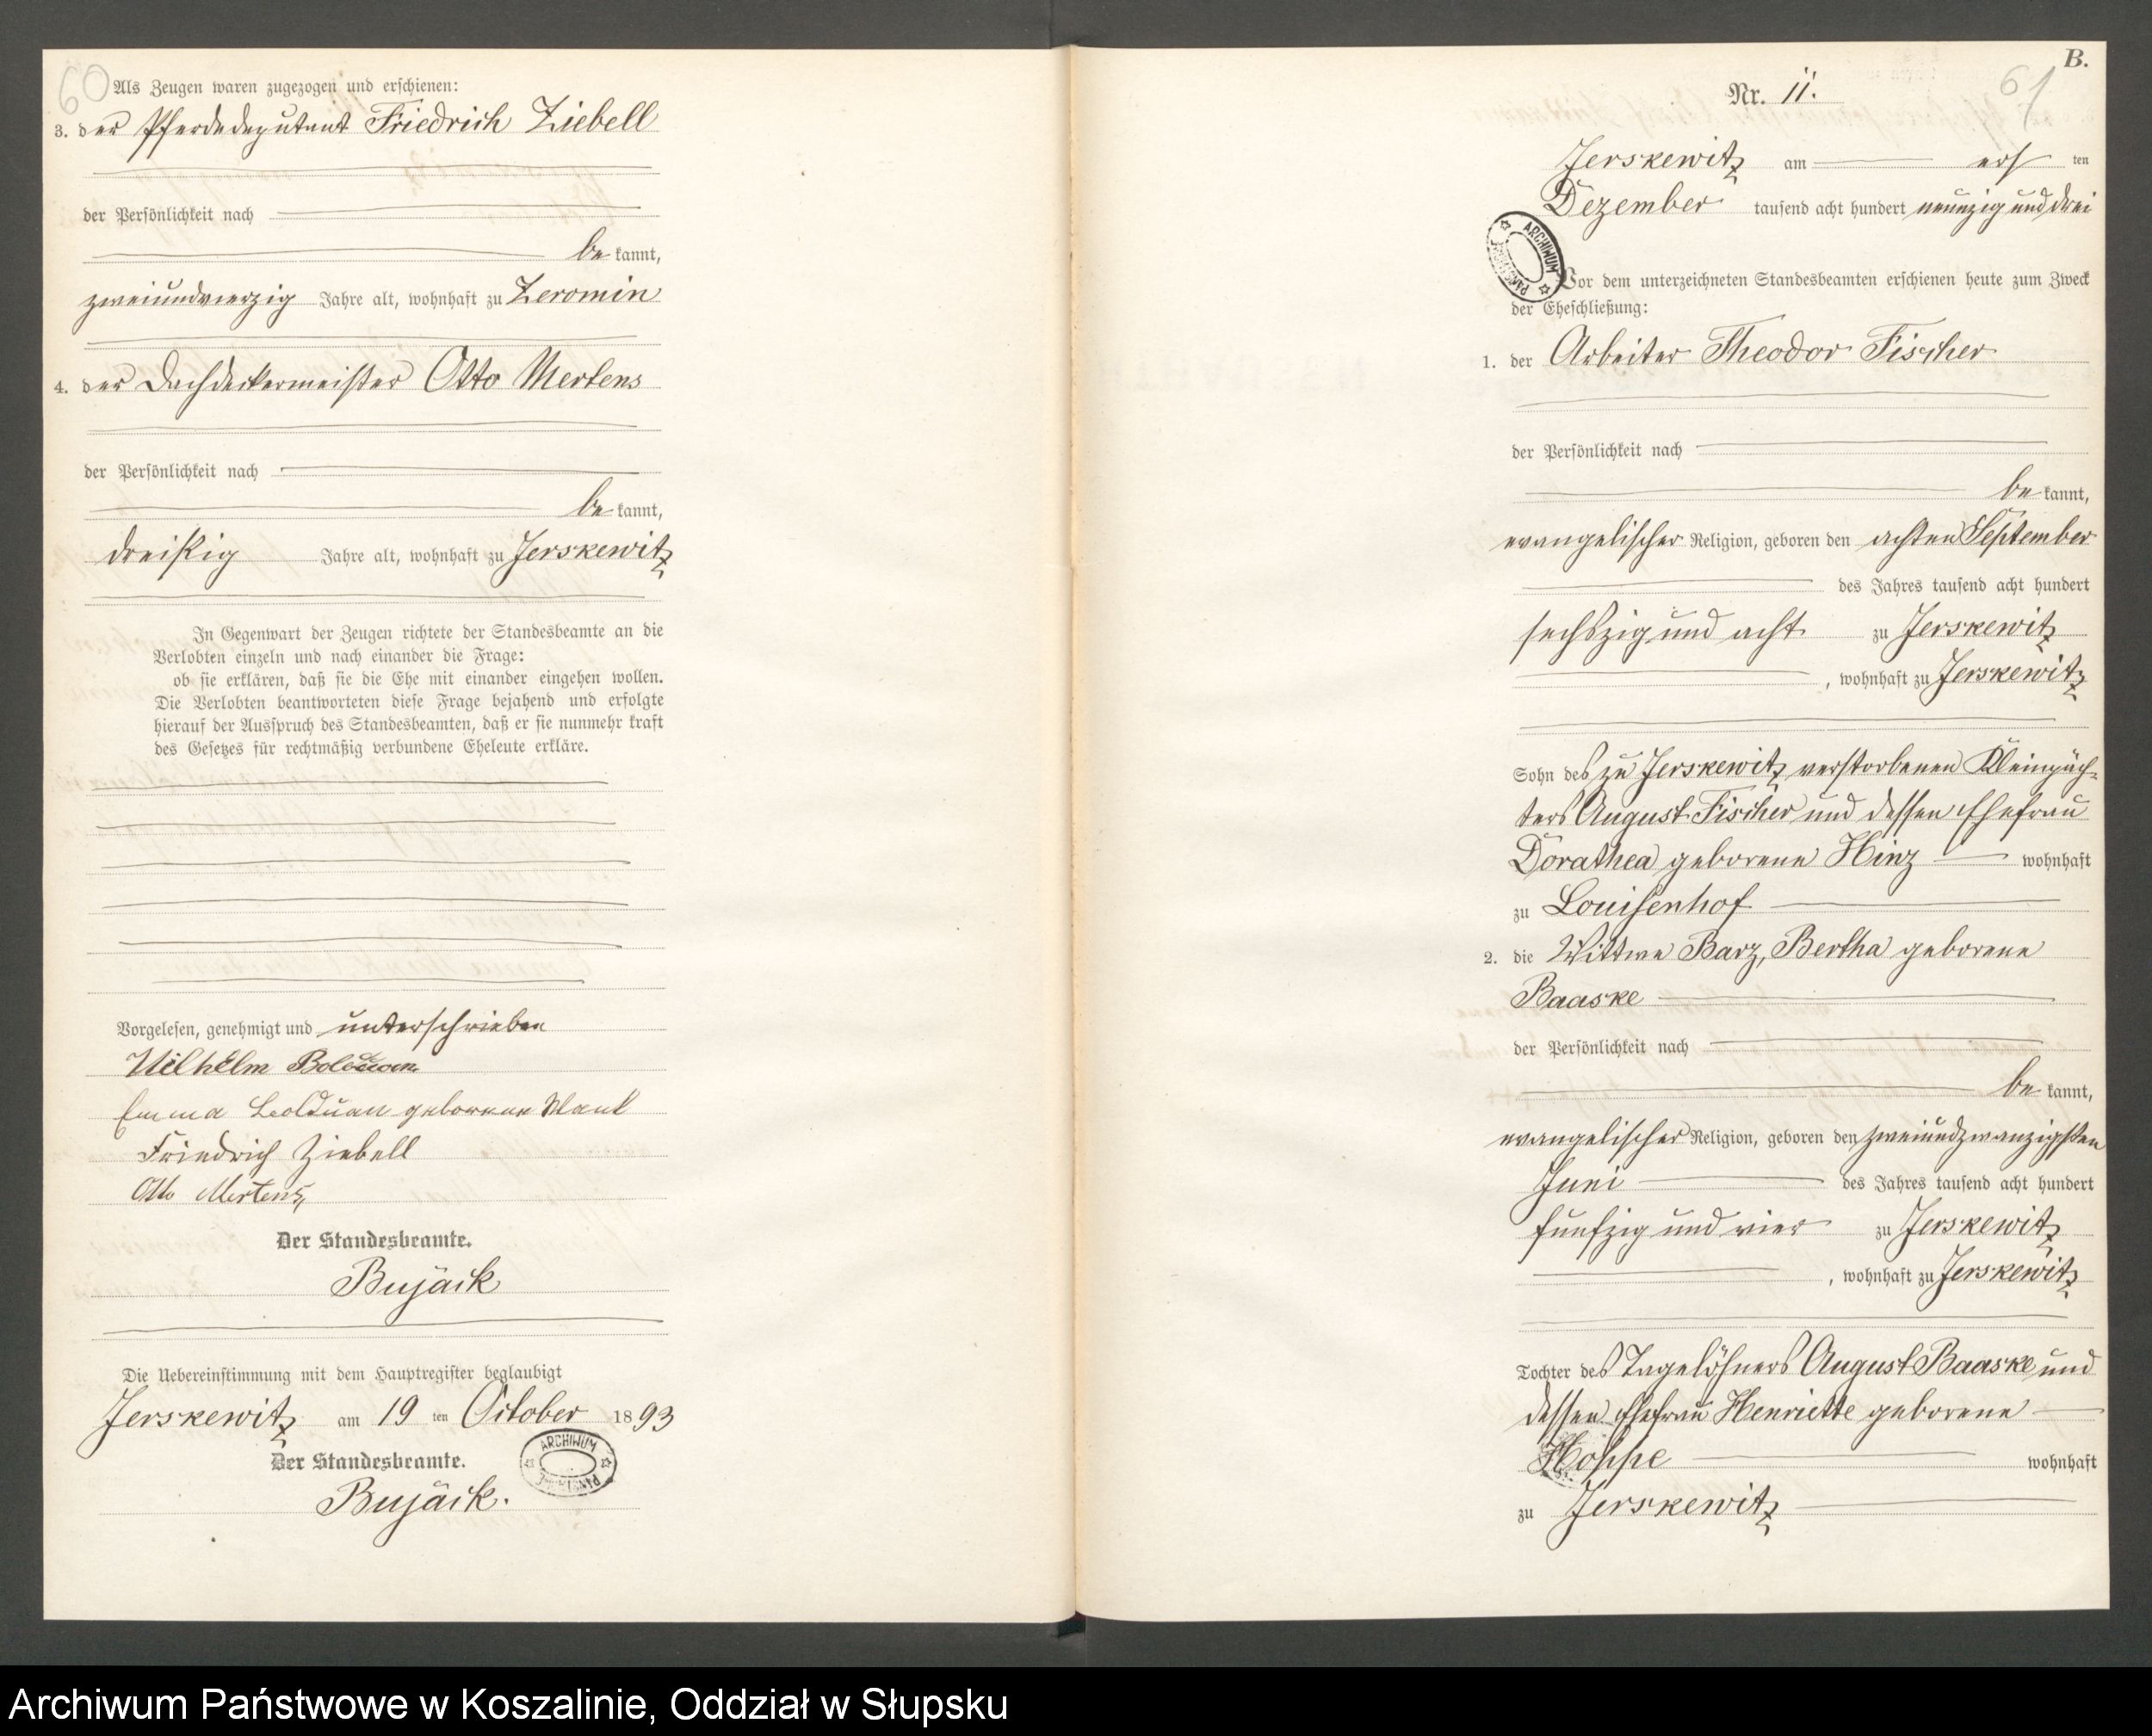 60
Als Zeugen waren zugezogen und erschienen:
3. der Pferdedeputant Friedrich Ziebell
der Persönlichkeit nach
be kannt,
zweiundvierzig Jahre alt, wohnhaft zu Zeromin
4. der Dachdeckermeister Otto Mertens
der Persönlichkeit nach
be kannt,
dreißig Jahre alt, wohnhaft zu Jerskewitz
In Gegenwart der Zeugen richtete der Standesbeamte an die
Verlobten einzeln und nach einander die Frage:
ob sie erklären, daß sie die Ehe mit einander eingehen wollen.
Die Verlobten beantworteten diese Frage bejahend und erfolgte
hierauf der Ausspruch des Standesbeamten, daß er sie nunmehr kraft
des Gesetzes für rechtmäßig verbundene Eheleute erkläre.
Vorgelesen, genehmigt und unterschrieben
Wilhelm
Emma Bolduan geborene
Friedrich Ziebell
Otto Mertens
Der Standesbeamte.
Bujäck
Die Uebereinstimmung mit dem Hauptregister beglaubigt
Jerskewitz am 19 ten October 1893
Der Standesbeamte.
Bujäck.
ARCHIWUM
B.
61
Nr. 11.
Jerskewitz am ersten
Dezember tausend acht hundert neunzig und drei
ARCHIWUM
Vor dem unterzeichneten Standesbeamten erschienen heute zum Zweck
der Eheschließung:
1. der Arbeiter Theodor Fischer
der Persönlichkeit nach
be kannt,
evangelischer Religion, geboren den achten September
des Jahres tausend acht hundert
sechszig und acht zu Jerskewitz
, wohnhaft zu Jerskewitz
Sohn des zu Jerskewitz verstorbenen Kleinpäch-
ters August Fischer und dessen Ehefrau
Dorathea geborene Hinz wohnhaft
zu Louisenhof
2. die Wittwe Barz, Bertha geborene
Baaske
der Persönlichkeit nach
be kannt,
evangelischer Religion, geboren den zweiundzwanzigsten
Juni des Jahres tausend acht hundert
funfzig und vier zu Jerskewitz
, wohnhaft zu Jerskewitz
Tochter des Tagelöhners August Baaske und
dessen Ehefrau Henriette geborene
Hoppe wohnhaft
zu Jerskewitz
Archiwum Państwowe w Koszalinie, Oddział w Słupsku